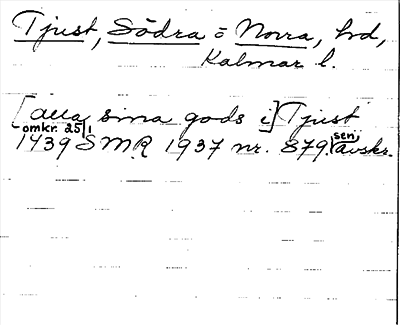 Tjust, Södra o Norra, hd,
Kalmar l.
[alla sina gods i] Tjust
omkr. 25/1 sen
1439 SMR 1937 nr. 879. avskr.